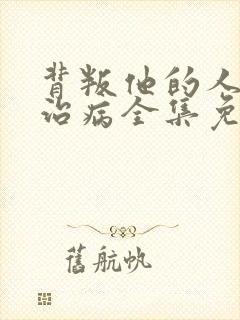 背叛他的人
治病全集免
舊航帆